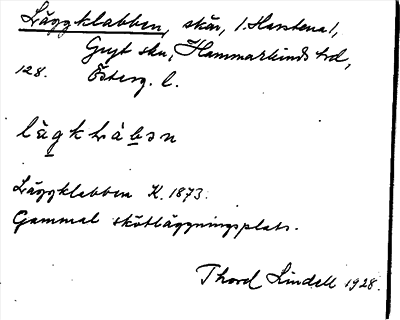 Läggklabben, skär, /Harstena/,
Gryt sn, Hammarkinds hd,
128. Österg. l.
lägkḷàbən
Läggklabben K. 1873.
Gammal skötläggningsplats.
Thord Lindell 1928.